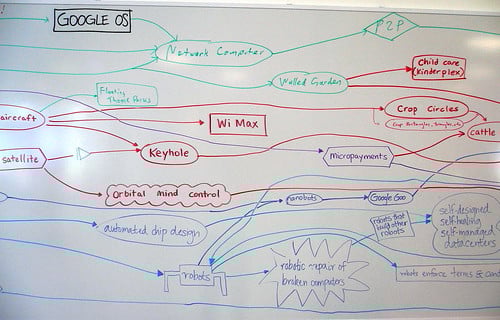 GOOGLE OS
P2P
Network Computer
Child care
(Kinderplex)
Walled Garden
Floating
Theme Parks
Crop Circles
aircraft
Crop Rectangles, Triangles, etc
Wi Max
cattle
satellite
Keyhole
micropayments
Orbital mind control
nanobots
Google Goo
self-designed
self-healing
self-managed
datacenters
automated chip design
robots that
build other
robots
robots
robotic repair of
broken computers
robots enforce terms & cond